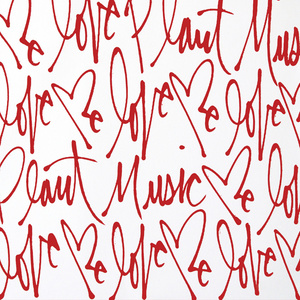 Me love Plaut Mus
love Me love Me love
Plaut Music Me
love Me love Me love